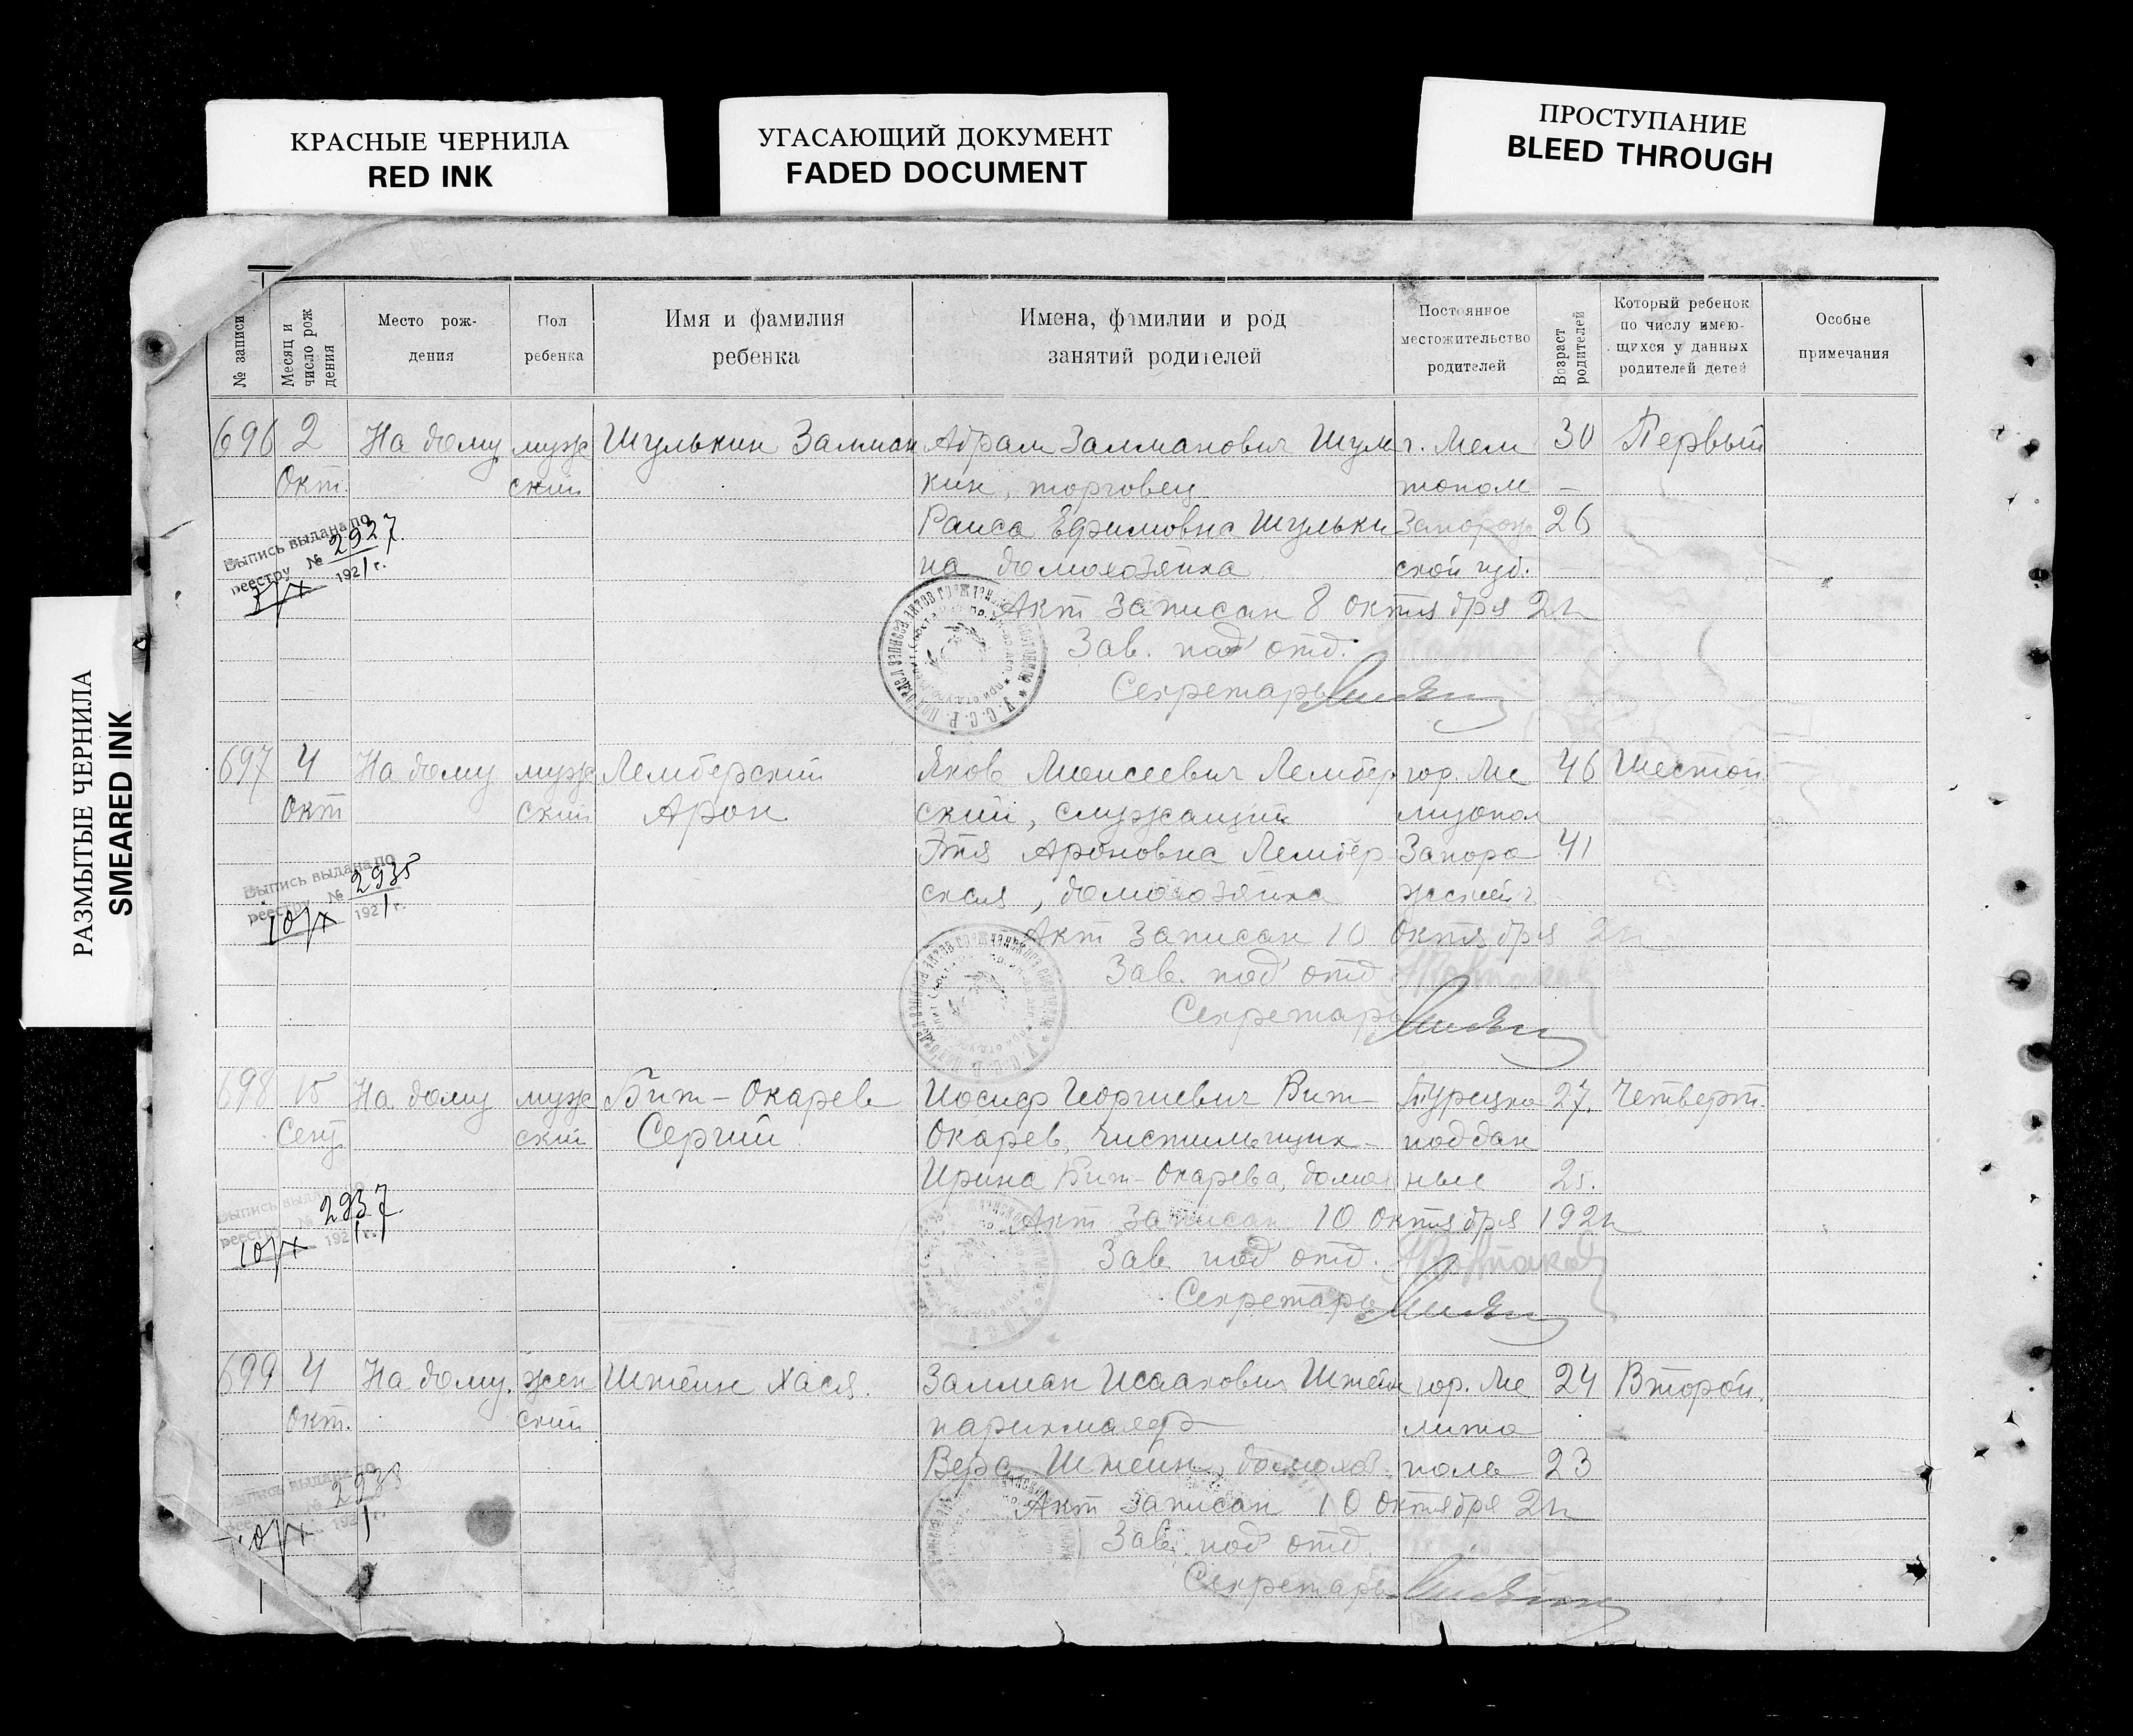 КРАСНЫЕ ЧЕРНИЛА
RED INK
УГАСАЮЩИЙ ДОКУМЕНТ
FADED DOCUMENT
ПРОСТУПАНИЕ
BLEED THROUGH
РАЗМЫТЫЕ ЧЕРНИЛА
SMEARED INK
№ записи
Месяц и
число рож
дения
Место рож-
дения
Пол
ребенка
Имя и фамилия
ребенка
Имена, фамилии и род
занятий родителей
Постоянное
местожительство
родителей
Возраст
родителей
Который ребенок
по числу имею-
щихся у данных
родителей детей
Особые
примечания
696 2 На дому муж Шулькин Залман Абрам Залманович Шуль г. Мели 30 Первый
Окт. ский кин, торговец тополь –
Раиса Ефимовна Шульки Запорож 26
на домохозяйка ской губ.
Выпись выдана по
реестру № 2927
1921 г.
Акт записан 8 октября 21г
Зав. под отд.
Секретарь
697 4 На дому муж Лемберский Яков Моисеевич Лембер гор. Ме 46 Шестой
Окт ский Арон ский, служащий
Этя Ароновна Лембер Запоро 41
ская, домохозяйка
Выпись выдана по
реестру № 2935
10/X 1921 г.
Акт записан 10 октября 21г
Зав. под отд
Секретарь
698 15 На дому муж Бит-Окарев Иосиф Георгиевич Бит- Турецко 27. Четверт.
Сент ский Сергий Окарев, чистильщик поддан
Ирина Бит-Окарева, домох ные 25.
Выпись выдана по
реестру № 2937
10/X 1921 г.
Акт записан 10 октября 1921г
Зав. под отд.
Секретарь
699 4 На дому. жен Штейн Хася. Залман Исаакович Штейн гор. Ме 24 Второй.
Окт. ский парикмахер лито
Вера Штейн, домохоз. поль 23
Выпись выдана по
10/X 1921 г.
Акт записан 10 октября 21г
Зав. под отд.
Секретарь